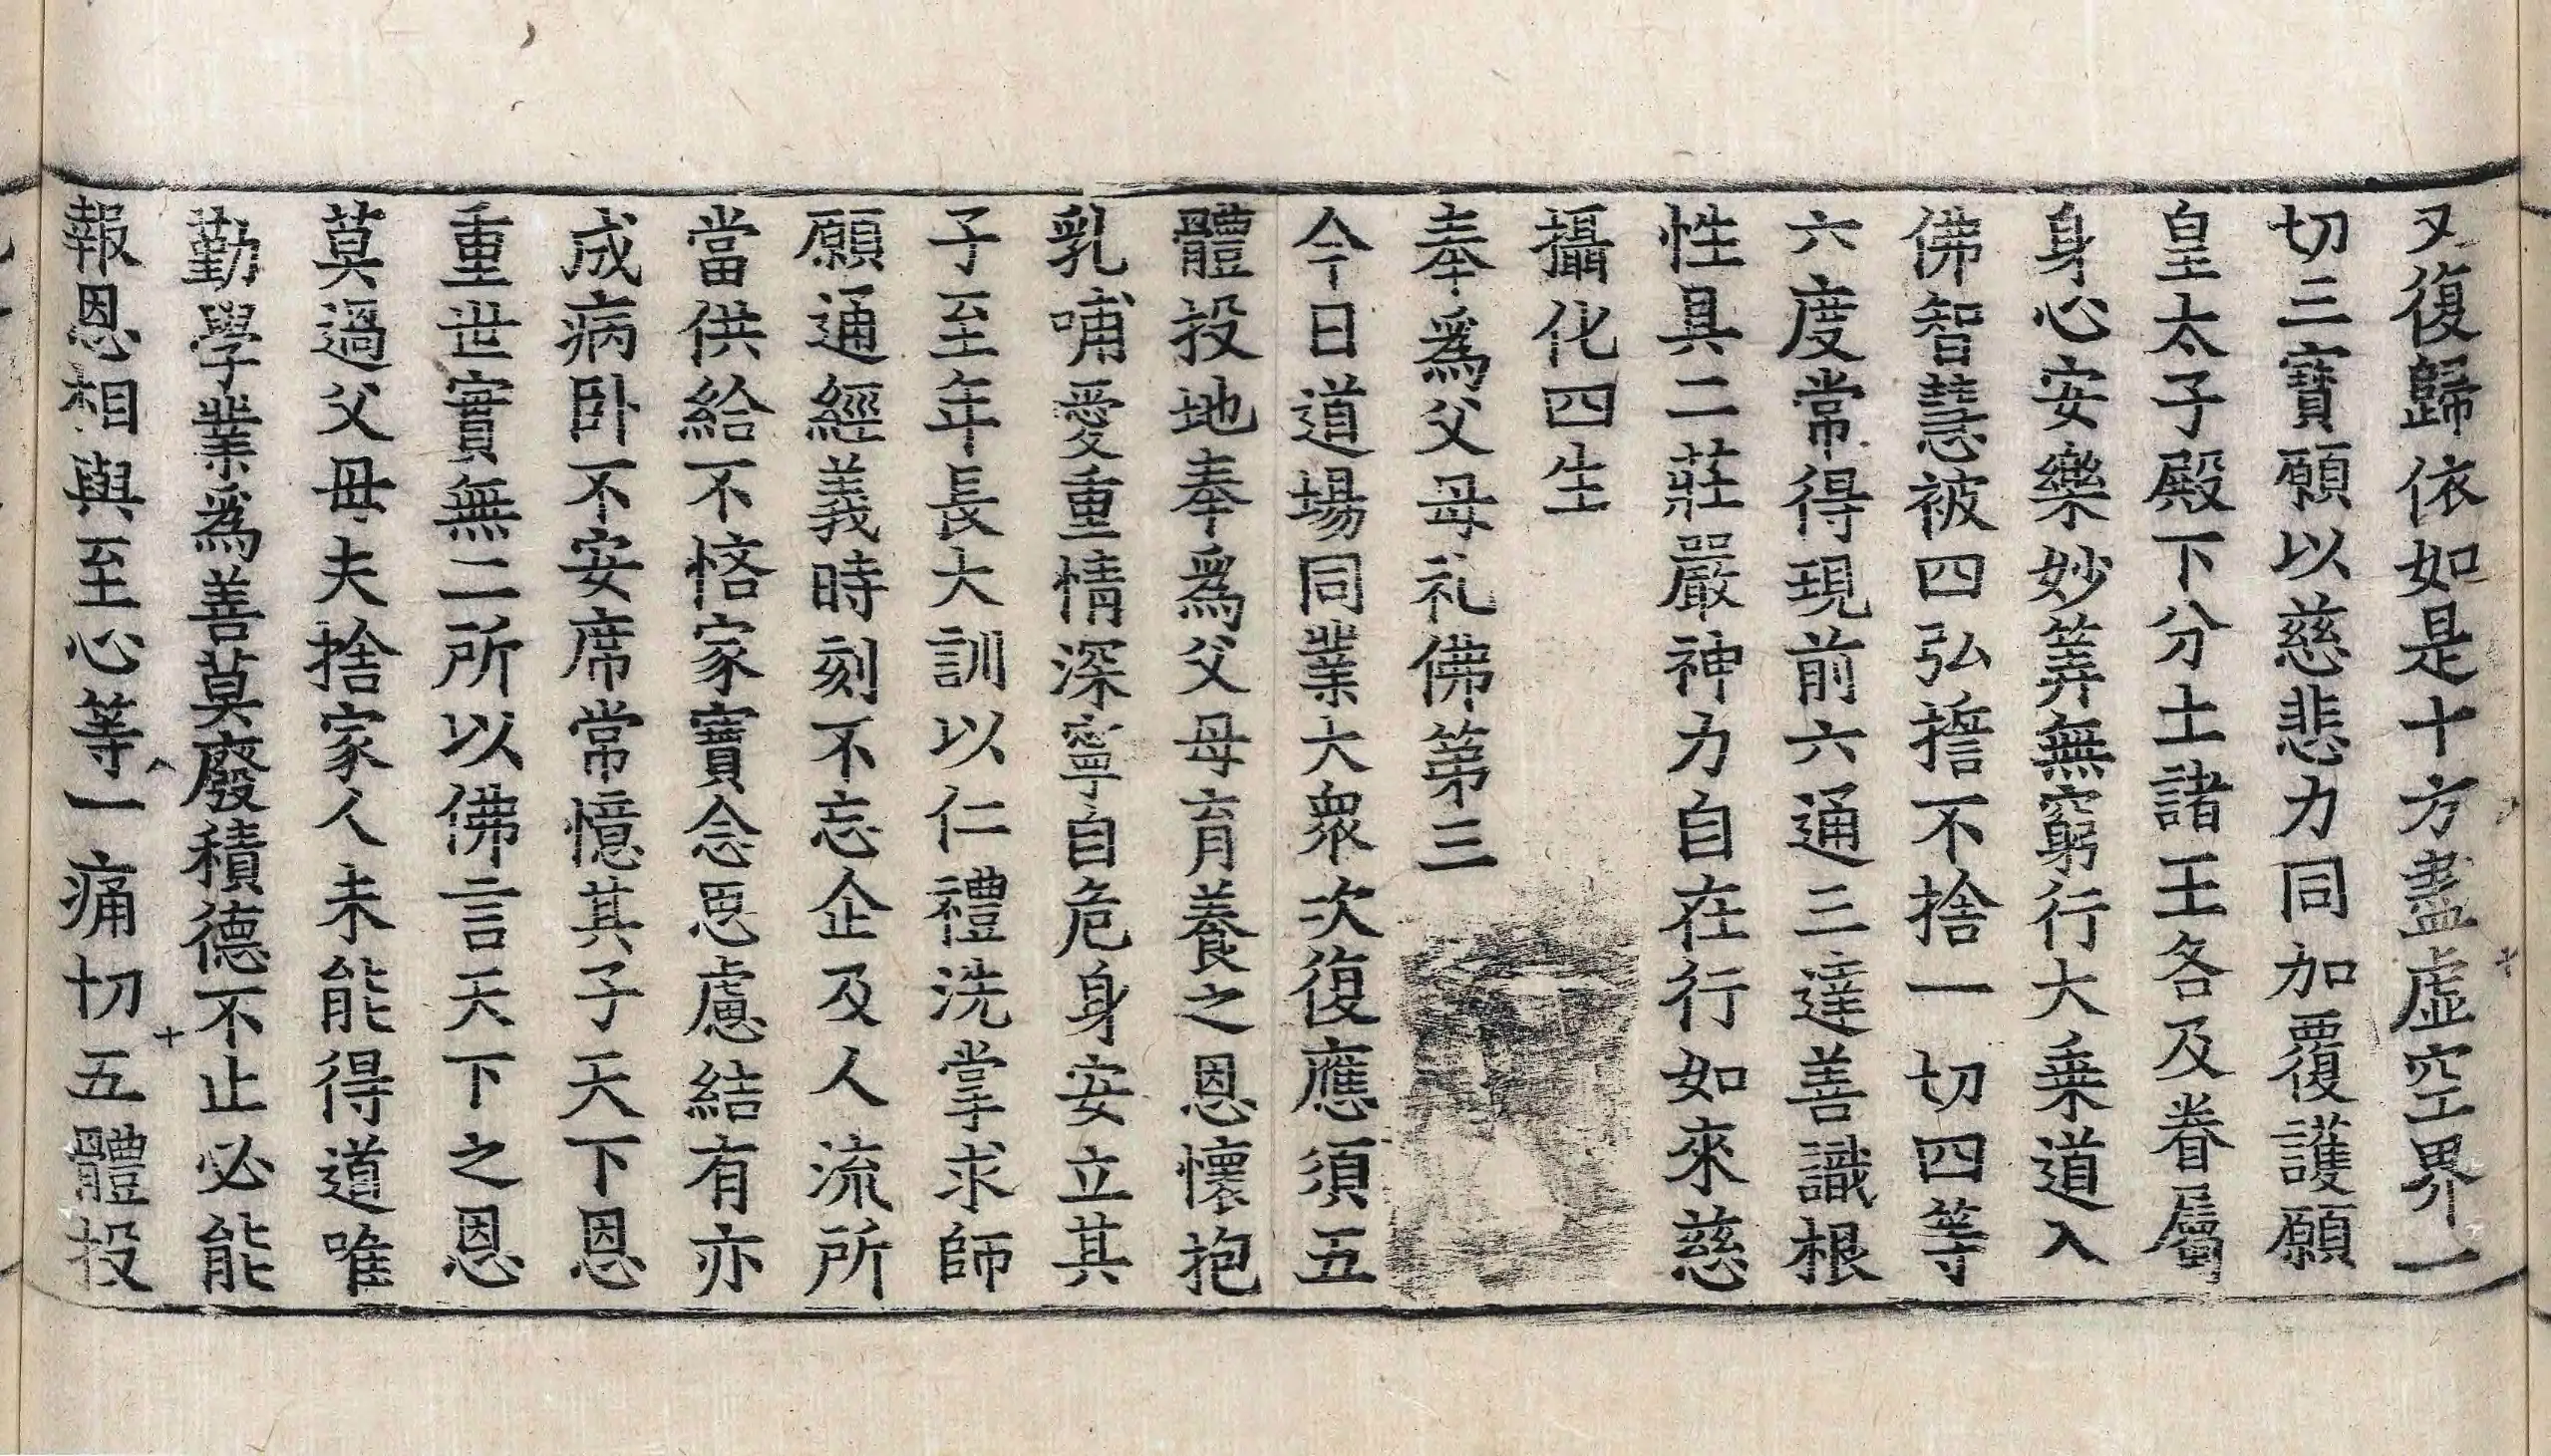 又復歸依如是十方盡虛空界一
切三寶願以慈悲力同加覆護願
皇太子殿下分土諸王各及眷屬
身心安樂妙筭無窮行大乗道入
佛智慧被四弘誓不捨一切四等
六度常得現前六通三達善識根
性具二莊嚴神力自在行如來慈
攝化四生
奉爲父母礼佛第三
今日道場同業大衆次復應須五
體投地奉爲父母育養之恩懷抱
乳哺愛重情深寧自危身安立其
子至年長大訓以仁禮洗掌求師
願通經義時刻不忘企及人流所
當供給不悋家寶念思慮結有亦
成病卧不安席常憶其子天下恩
重世實無二所以佛言天下之恩
莫過父母夫捨家人未能得道唯
勤學業爲善莫廢積德不止必能
報恩相與至心等一痛切五體投